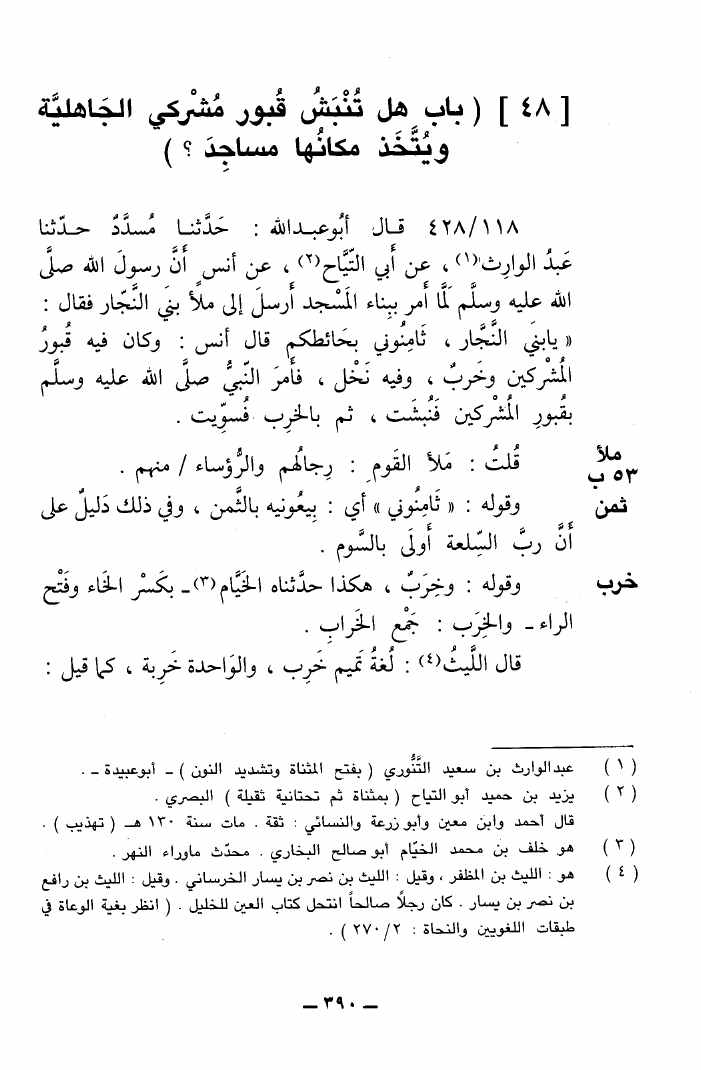 [ ٤٨ ] ( باب هل تُنْبَشُ قُبور مُشْركي الجَاهليَّة
ويُتَّخَذ مكانُها مساجِدَ ؟ )
٤٢٨/١١٨ قـال أبُوعبـدالله : حَدَّثنـا مُسدَّدٌ حـدّثنا
عَبدُ الوارِث(١) ، عن أَبي التَّيَّاح(٢) ، عن أنسٍ أَنَّ رسولَ الله صلَّى
الله عليه وسلَّم لَمَّا أَمر بِبناء المَسْجد أَرسلَ إلى ملأ بنَي النَّجّار فقال :
« يابنَي النَّجَّار ، ثَامِنُوني بحَائطكم قال أنس : وكان فيه قُبورُ
المُشركين وخَربٌ ، وفيه نَخْل ، فأَمرَ النّبيُّ صلَّى الله عليه وسلَّم
بقُبورِ المُشركين فَنُبشَت ، ثم بالخرِب فسُوّيت .
ملأ قُلتُ : مَلأ القَومِ : رِجالُهم والرُّؤساء / منهم .
٥٣ ب
ثمن وقوله : « ثَامِنُوني » أي : بِيعُونيه بالثَّمن ، وفي ذلك دَليلٌ على
أَنَّ ربَّ السِّلعة أَولَى بالسَّوم .
خرب وقوله : وخِرَبٌ ، هكذا حدَّثناه الخَيَّام(٣) ـ بكَسْر الخَاء وفَتْح
الراء ـ والخِرَب : جَمْع الخَرابِ .
قال اللَّيثُ(٤) : لُغةُ تَميم خَرِب ، والوَاحدة خَرِبة ، كما قيل :
( ١ ) عبدالوارث بن سعيد التَّنُّوري ( بفتح المثناة وتشديد النون ) ـ أبوعبيدة ـ .
( ٢ ) يزيد بن حميد أبو التياح ( بمثناة ثم تحتانية ثقيلة ) البصري .
قال أحمد وابن معين وأبو زرعة والنسائي : ثقة . مات سنة ١٣٠ هـ ( تهذيب ) .
( ٣ ) هو خلف بن محمد الخيّام أبو صالح البخاري . محدّث ماوراء النهر .
( ٤ ) هو : الليث بن المظفر ، وقيل : الليث بن نصر بن يسار الخرساني . وقيل : الليث بن رافع
بن نصر بن يسار . كان رجلاً صالحاً انتحل كتاب العين للخليل . ( انظر بغية الوعاة في
طبقات اللغويين والنحاة : ٢٧٠/٢ ) .
ـ ٣٩٠ ـ